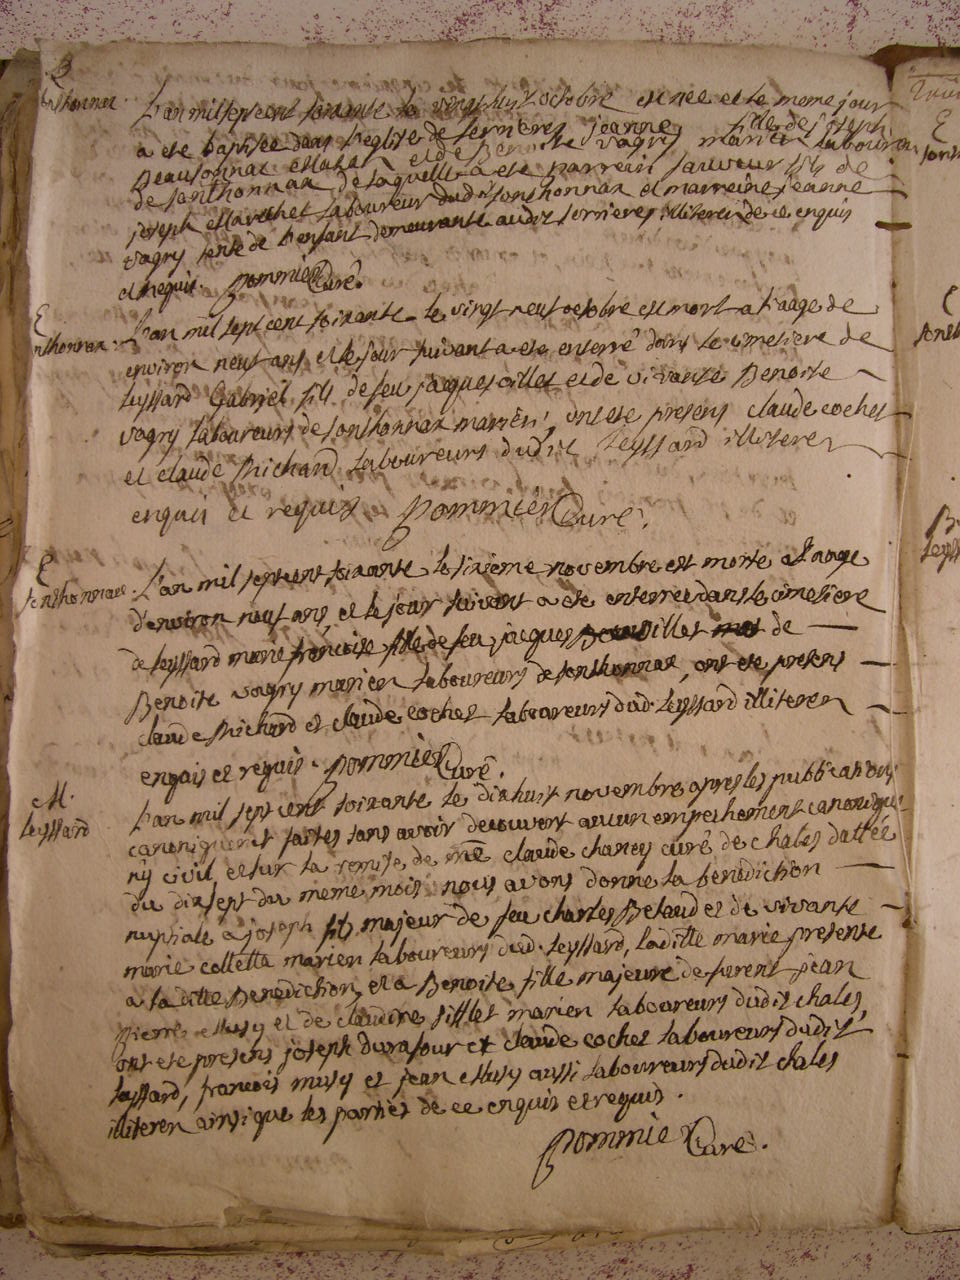 B
Sonthonnax L'an mil sept cent soixante le vingt huit octobre est née et le meme jour
a eté baptisée dans l'eglise de Serrieres jeanne fille de joseph
Beausonnax et de Benoite vagry mariez laboureurs
de Sonthonnax de laquelle a eté parrein sauveur fils de
joseph laboureur dudit Sonthonnax et marreine jeanne
vagry tente de l'enfant demeurante audit Serrieres illiterez de ce enquis
et requis. Pommier Curé.
E
Sonthonnax. L'an mil sept cent soixante le vingt neuf octobre est mort a l'aage de
environ neuf ans et le jour suivant a eté enterré dans le cimetiere de
leyssard Gabriel fils de feu jacques oillet et de vivante Benoite
vagry laboureurs de Sonthonnax mariéz, ont eté presens claude cochet
et claude Michard laboureurs dudit Leyssard illiterez
enquis et requis Pommier Curé.
E
Sonthonnax. L'an mil sept cent soixante le sixième novembre est morte a l'aage
d'environ neuf ans, et le jour suivant a eté enterrée dans le cimetiere
de leyssard marie françoise fille de feu jacques oillet de
Benoite vagry mariez laboureurs de Sonthonnax, ont eté presens
claude Michard et claude cochet laboureurs dud. Leyssard illiterez
enquis et requis. Pommier Curé.
M.
Leyssard L'an mil sept cent soixante le dixhuit novembre apres les publications
canoniquemt faites sans avoir decouvert aucun empechement canonique
ny civil et sur la remise de mre claude chaney curé de chales dattée
du dixsept du meme mois nous avons donné la benediction
nuptiale a joseph fils majeur de feu charles Betaud et de vivante
marie colletta mariez laboureurs dud. Leyssard, laditte marie presente
a laditte Benediction, et a Benoite fille majeure de furent jean
Pierre Musy et de claudine sillet mariez laboureurs dudit chales,
ont eté presens joseph Durafour et claude cochet laboureurs dudit
leyssard, françois musy et jean Musy aussi laboureurs dudit chales
illiterez ainsi que les parties de ce enquis et requis.
Pommier Curé.